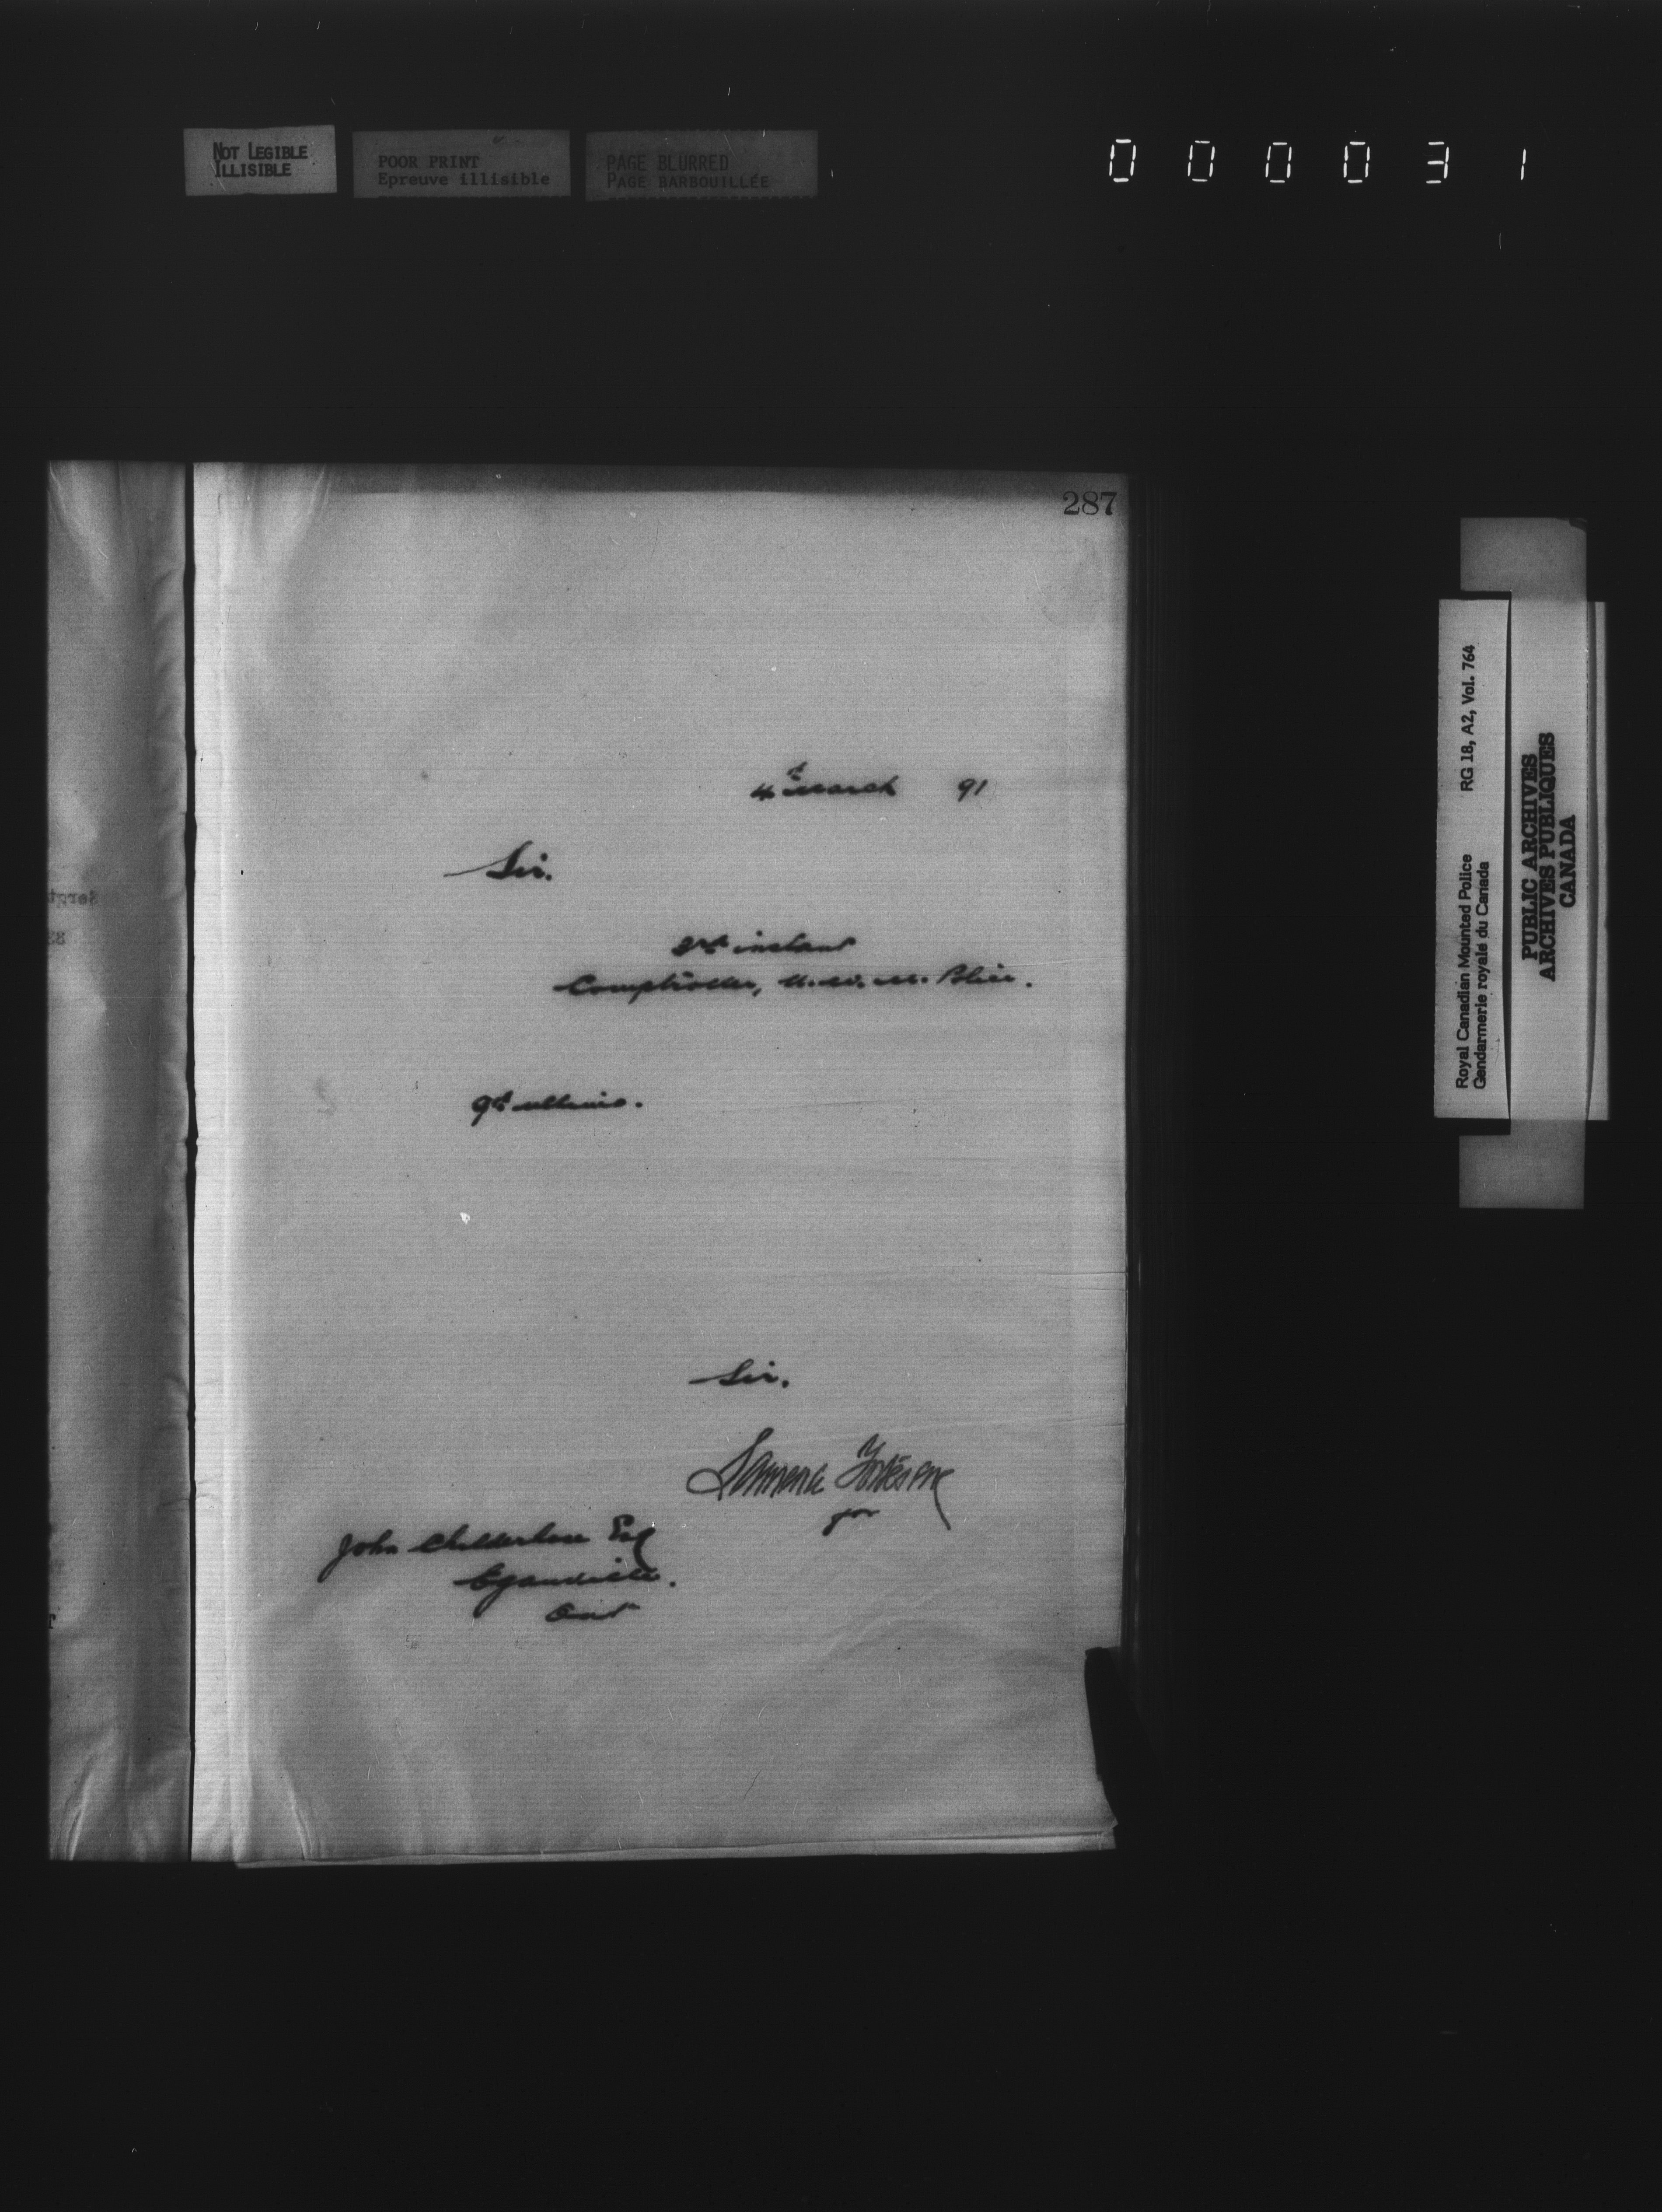 NOT LEGIBLE
ILLISIBLE
POOR PRINT
Epreuve illisible
PAGE BLURRED
PAGE BARBOUILLÉE
000031
287
4th March 91
Sir.
instant
Comptroller, N. W. M. Police.
9th ultimo.
Sir.
for
John Esq
Eganville.
Ont
Royal Canadian Mounted Police RG 18, A2, Vol. 764
Gendarmerie royale du Canada
PUBLIC ARCHIVES
ARCHIVES PUBLIQUES
CANADA